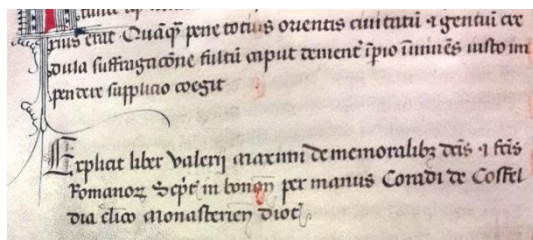 pius erat Quāq̄ȝ pene totius orientis ciuitatū ⁊ gentiū cre
dula suffragacōne fultū caput dementē īpio īminēs iusto im
pendere supplicio coegit
Explicit liber Valerij maximi de memoralibȝ dc̄is ⁊ fc̄is
Romanoꝝ Sc̄pt̄ in bonon per manus Coradi de Cosfel
dia clico monasterien dioc̄